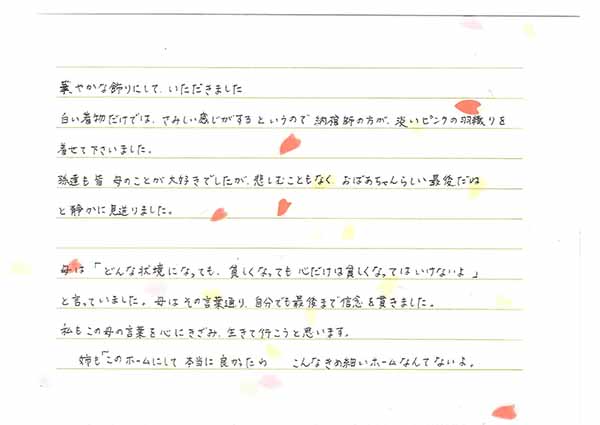 華やかな飾りにして、いただきました
白い着物だけでは、さみしい感じがするというので納棺師の方が、淡いピンクの羽織りを
着せて下さいました。
孫達も皆 母のことが大好きでしたが、悲しむこともなく、おばあちゃんらしい最後だね
と静かに見送りました。
母は「どんな状境になっても、貧しくなっても心だけは貧しくなってはいけないよ」
と言っていました。母はその言葉通り、自分でも最後まで信念を貫きました。
私もこの母の言葉を心にきざみ、生きて行こうと思います。
姉も「このホームにして本当に良かったわ こんなきめ細いホームなんてないよ。